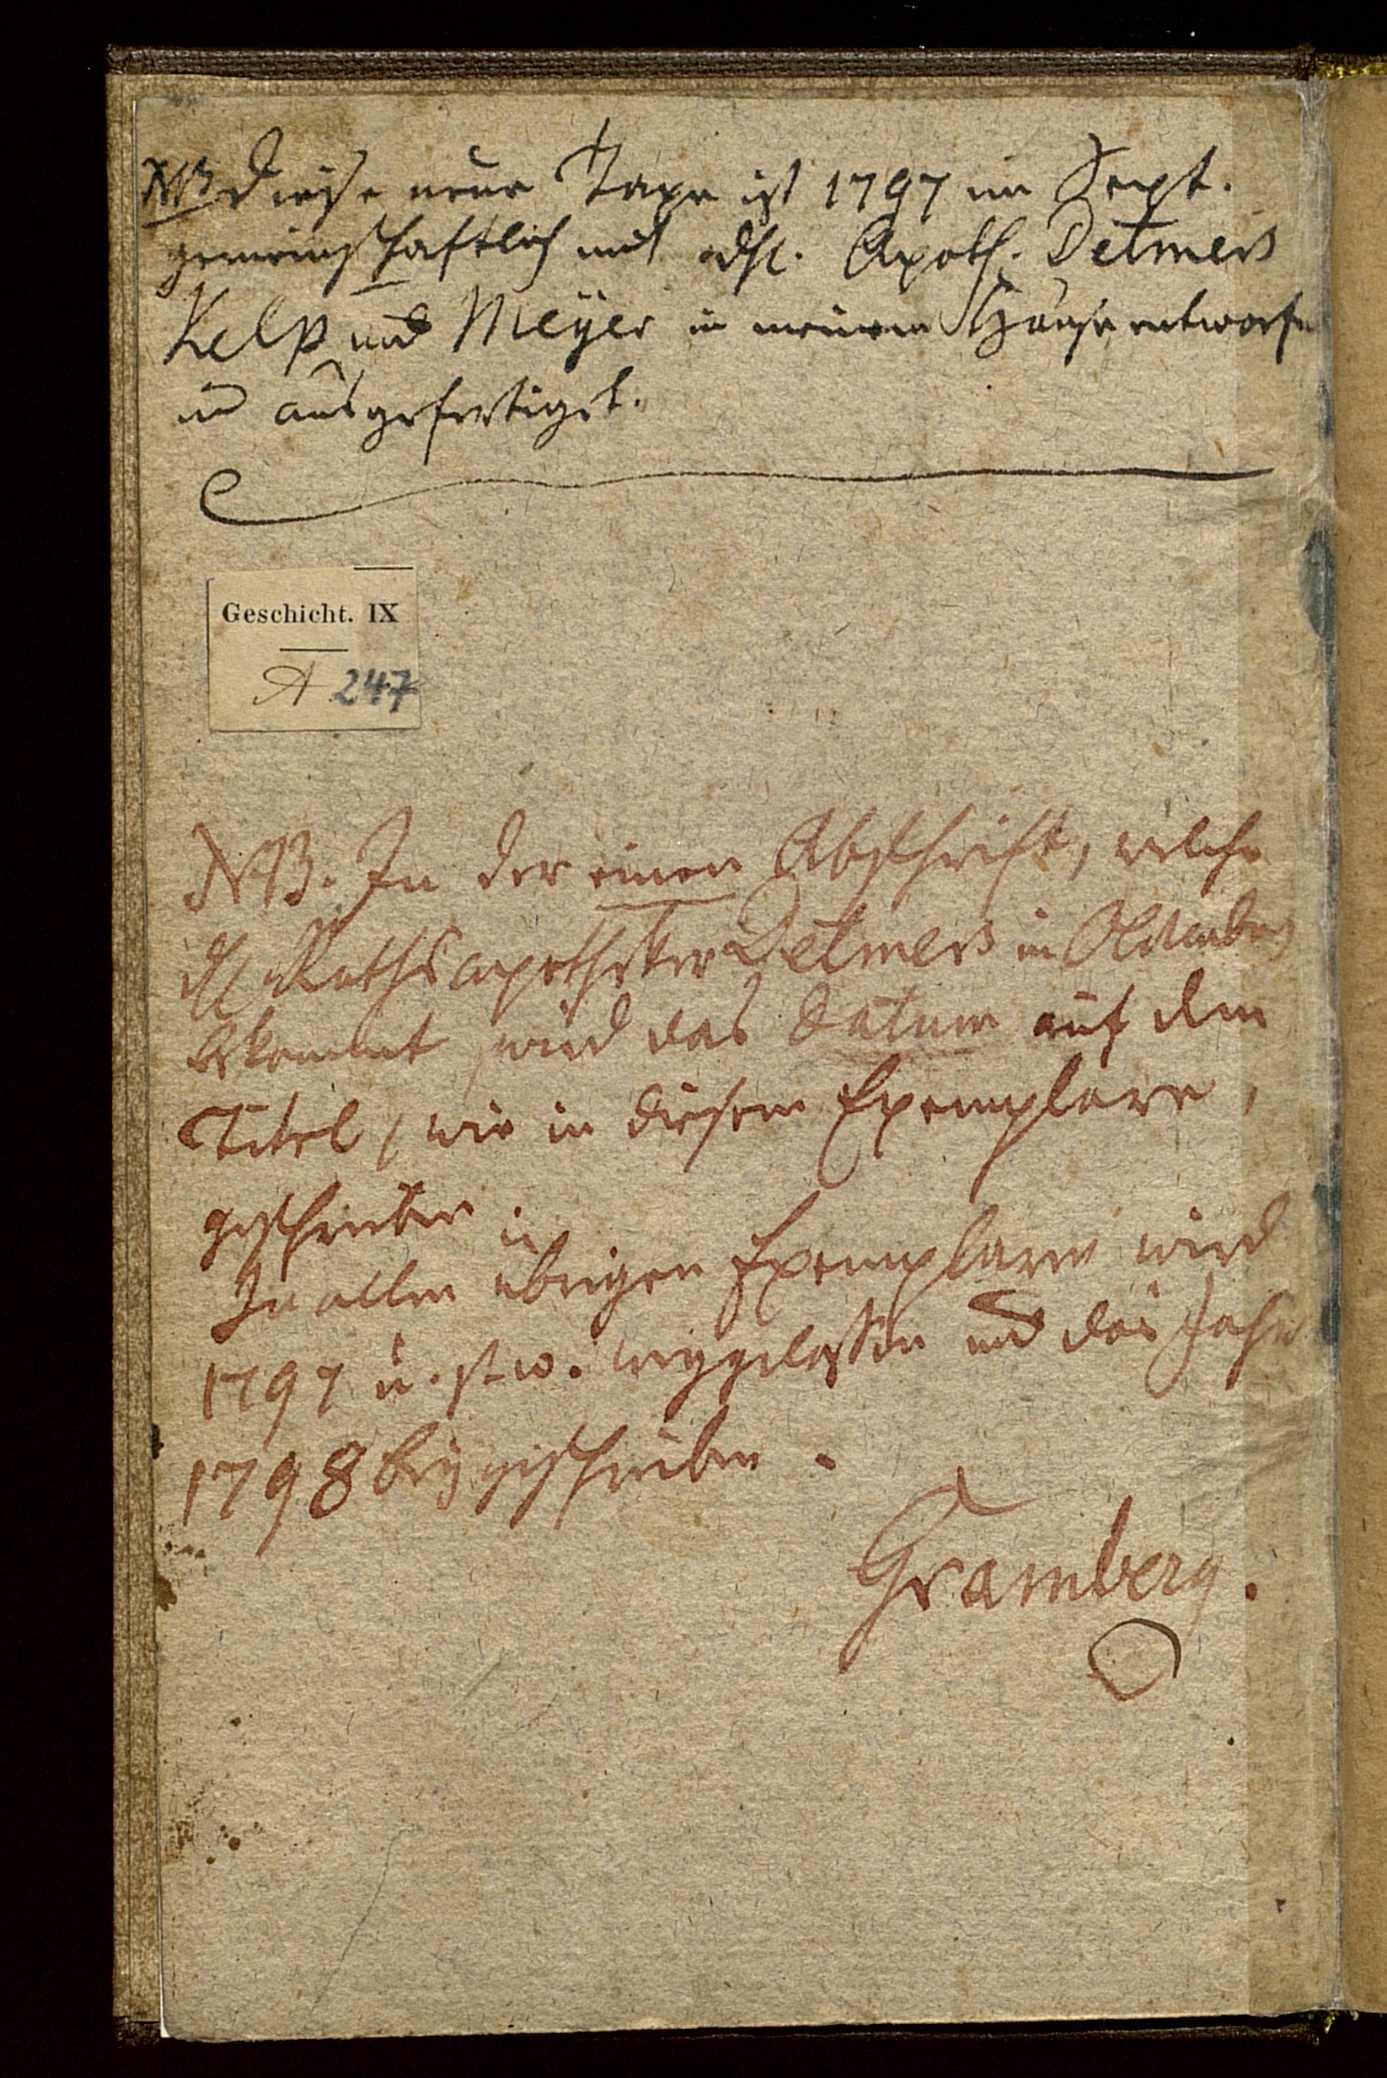 NB Diese neue Taxe ist 1797 im Sept.
gemeinschaftlich mit dH. Apoth. Detmers
Kelp und Meyer in meinem Hause entworfen
und ausgefertiget.
Geschicht. IX
A 247
NB. In der einen Abschrift, welche
dH Rathsapotheker Detmers in Oldenburg
bekommt, wird das Datum auf dem
Titel, wie in diesem Exemplare,
geschrieben.
In allen übrigen Exemplaren wird
1797 u. s. w. weggelassen und das Jahr
1798 beygeschrieben.
Gramberg.